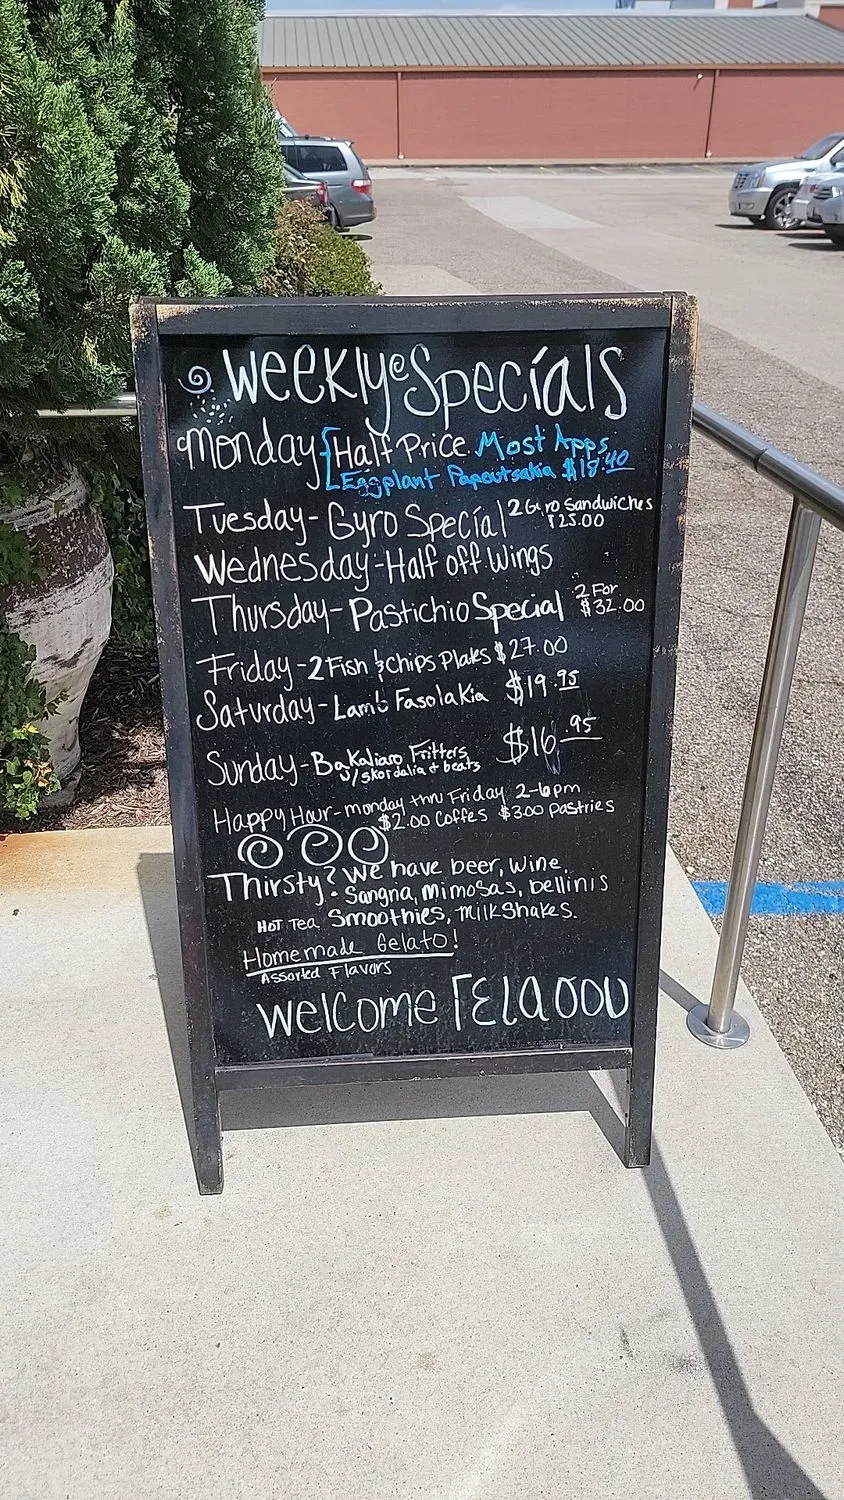 Weekly Specials
Monday Half Price Most Apps
Eggplant Papoutsakia $18.40
Tuesday - Gyro Special 2 Gyro Sandwiches
$25.00
Wednesday - Half off Wings
Thursday - Pastichio Special 2 For
$32.00
Friday - 2 Fish & Chips Plates $27.00
Saturday - Lamb Fasolakia $19.95
Sunday - Bakaliaro Fritters $16.95
w/skordalia + beats
Happy Hour - monday thru Friday 2-6pm
$2.00 Coffes $3.00 Pastries
Thirsty? We have beer, wine,
Sangria, mimosas, bellinis
HOT Tea Smoothies, milkshakes.
Homemade Gelato!
Assorted Flavors
Welcome ΓΕΙΑ ΣΟΥ